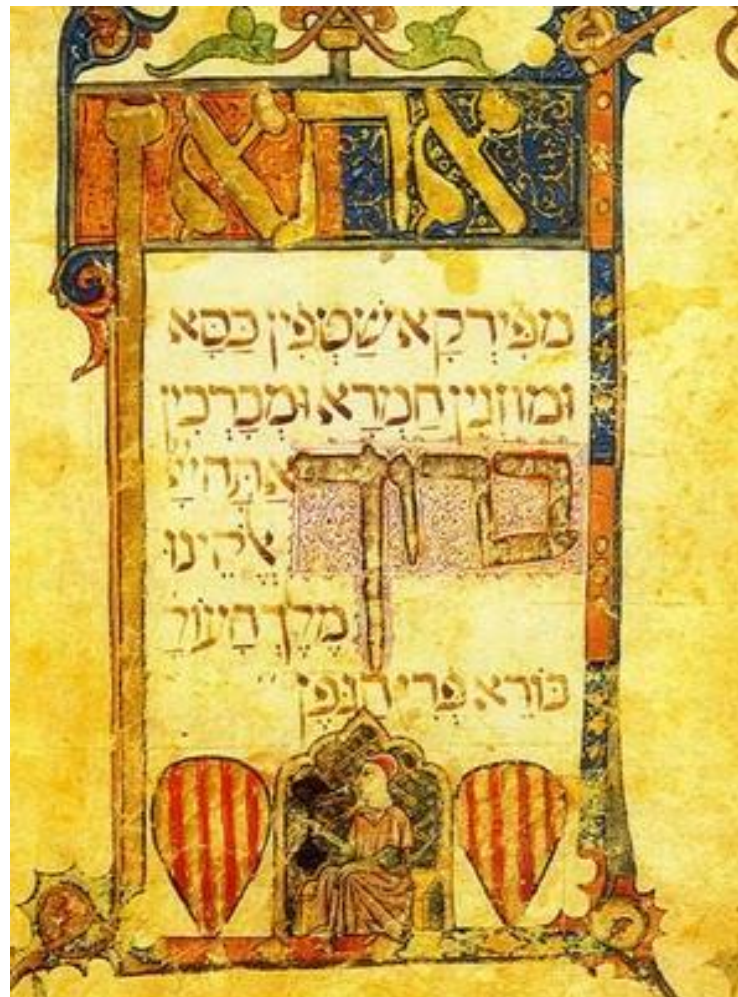 אתאן
מִפִּירְקָא שַׁטְפִין כַּסָּא
וּמוזְגִין חַמְרָא וּמְבָרְכִין
ברוך אַתָּה יְיָ
אֱלֹהֵינוּ
מֶלֶךְ הָעוֹלָ
בּוֹרֵא פְּרִי הַגֶּפֶן